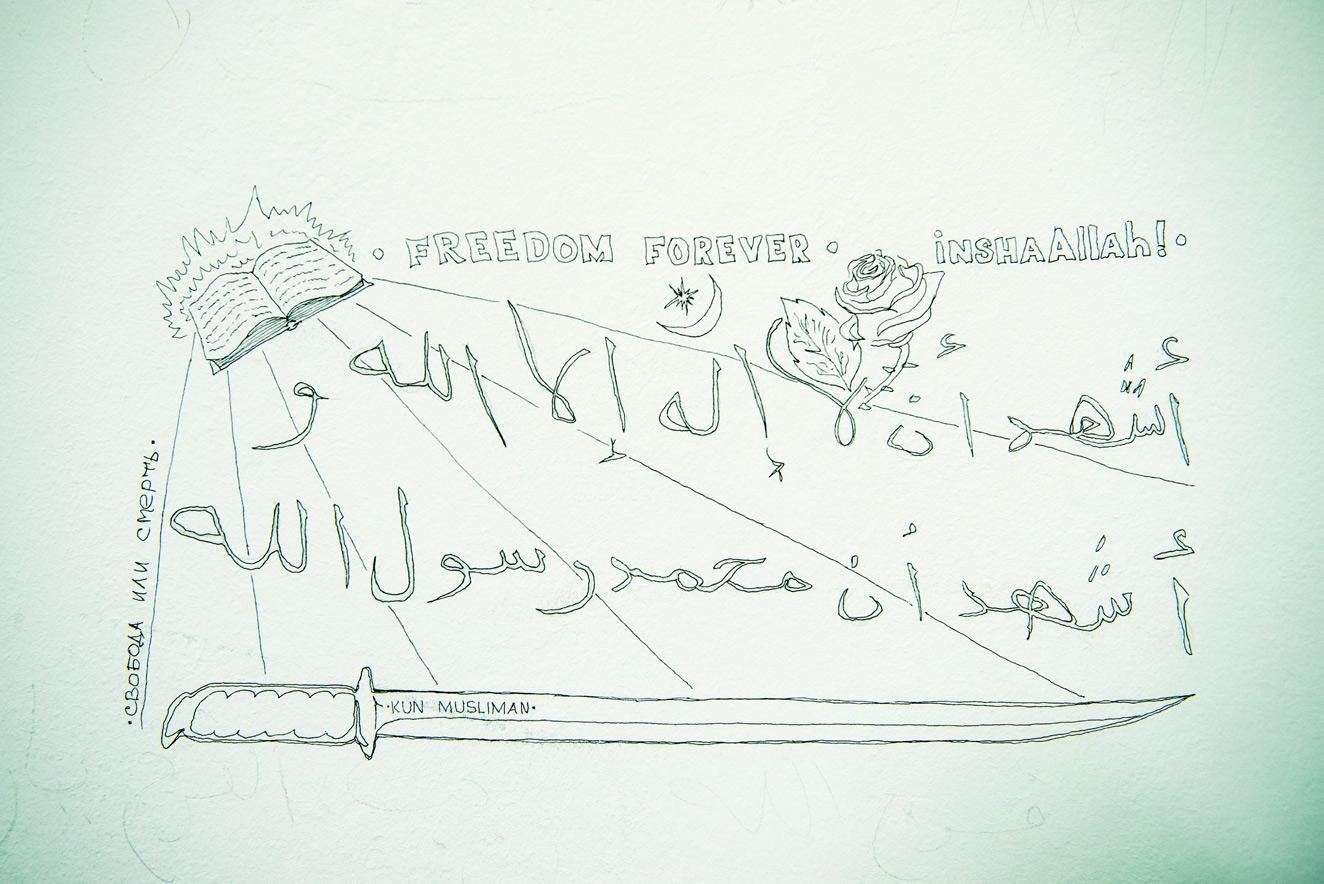 · FREEDOM FOREVER · iNSHAAllah! ·
أشهد أن لا إله إلا الله و
أشهد أن محمد رسول الله
· СВОБОДА ИЛИ СМЕРТЬ ·
· KUN MUSLIMAN ·